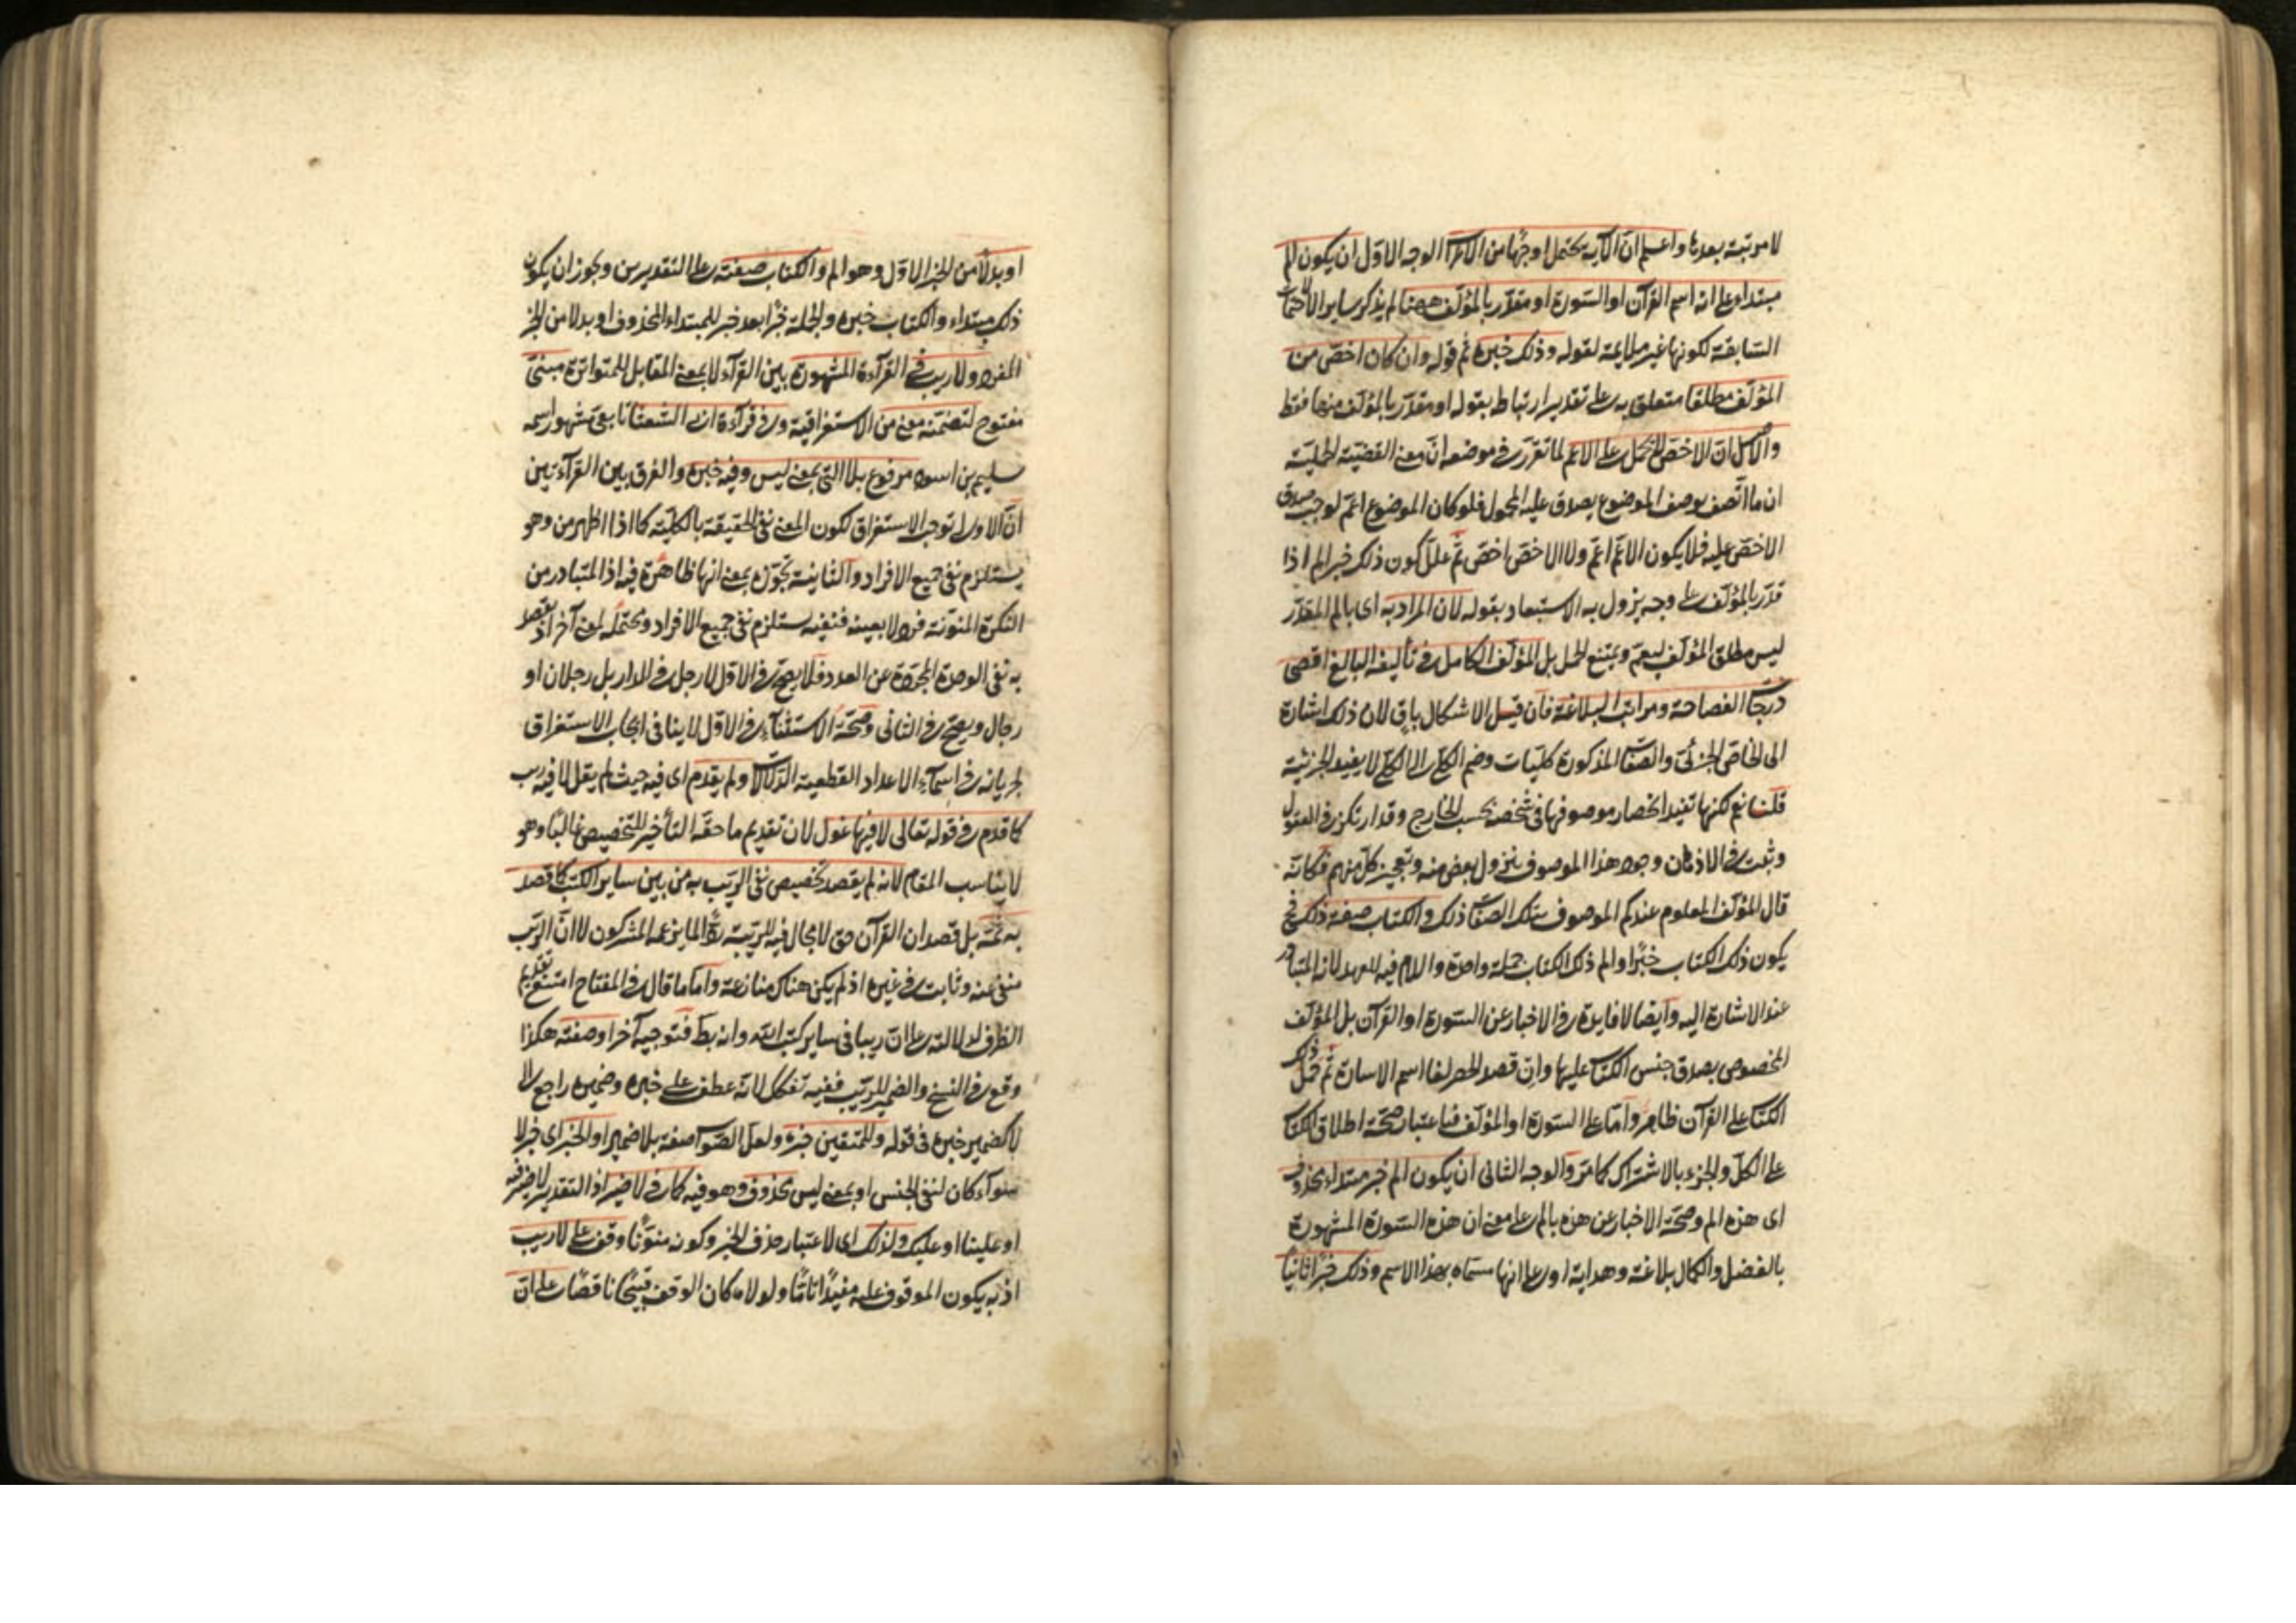 لا مرتبة بعدها واعلم ان الآية يحتمل اوجها من الاعراب الوجه الاول ان يكون الم
مبتداء على انه اسم القرآن او السورة او مقدر بالمؤلف ههنا لم يذكر ساير الاحتمالات
السابقة لكونها غير ملايمة لقوله وذلك خبره ثم قوله وان كان اخص من
المؤلف مطلقا متعلق به على تقدير ارتباط بقوله او مقدر بالمؤلف منها فقط
والاصل ان الاخص لا يحمل على الاعم لما تقرر في موضعه ان معنى القضية الحملية
ان ما اتصف بوصف الموضوع يصدق عليه المحمول فلو كان الموضوع اعم لوجب صدق
الاخص عليه فلا يكون الاعم اعم ولا الاخص اخص ثم علل كون ذلك خبر الم اذا
قدر بالمؤلف على وجه يزول به الاستبعاد بقوله لان المراد به اى بالم المقدر
ليس مطلق المؤلف ليعم ويمتنع الحمل بل المؤلف الكامل في تأليفه البالغ اقصى
درجات الفصاحة ومراتب البلاغة فان قيل الاشكال باق لان ذلك اشارة
الى الخاص الجزئى والصفات المذكورة كليات وضم الكلى الى الكلى لا يفيد الجزئية
قلنا نعم لكنها تفيد انحصار موصوفها في شخصه بحسب الخارج وقد ارتكز في العقول
وثبت في الاذهان وجود هذا الموصوف بنزول بعض منه وتعجيز كل منهم فكانه
قال المؤلف المعلوم عندكم الموصوف بتلك الصفات ذلك والكتاب صفة ذلك فح
يكون ذلك الكتاب خبرا والم ذلك الكتاب جملة واحدة واللام فيه للعهد لانه المتبادر
عند الاشارة اليه وايضا لا فايدة في الاخبار عن السورة او القرآن بل المؤلف
المخصوص بصدق جنس الكتاب عليها وان قصد الحصر لغا اسم الاشارة ثم حمل ذلك
الكتاب على القرآن ظاهر واما على السورة او المؤلف فباعتبار صحة اطلاق الكتاب
على الكل والجزء بالاشتراك كما مر والوجه الثانى ان يكون الم خبر مبتداء محذوف
اى هذه الم وصحة الاخبار عن هذه بالم على معنى ان هذه السورة المشهورة
بالفضل والكمال بلاغة وهداية او على انها مسماة بهذا الاسم وذلك خبرا ثانيا
او بدلا من الخبر الاول وهو الم والكتاب صفته على التقديرين وجوز ان يكون
ذلك مبتداء والكتاب خبره والجملة خبرا بعد خبر للمبتداء المحذوف او بدلا من الخبر
المفرد ولا ريب في القرآءة المشهورة بين القرآء لا بمعنى المقابل للمتواترة مبنى
مفتوح لتضمنه معنى من الاستغراقية وفي قرآءة ابى الشعثا تابعى مشهور اسمه
سليم بن اسود مرفوع بلا التى بمعنى ليس وفيه خبره والفرق بين القرآءتين
ان الاولى توجب الاستغراق لكون المعنى نفى الحقيقة بالكلية كما اذا اظهر من وهو
يستلزم نفى جميع الافراد والثانية تجوزه بمعنى انها ظاهرة فيه اذ المتبادر من
النكرة المنونة فرد لا بعينه فنفيه يستلزم نفى جميع الافراد ومحتملة لمعنى آخر اذ يقصد
به نفى الوحدة المجردة عن العدد فلا يصح في الاول لا رجل في الدار بل رجلان او
رجال ويصح في الثانى وصحة الاستثنآء في الاول لا ينافى ايجاب الاستغراق
لجريانه في اسمآء الاعداد القطعية الدلالات ولم يقدم اى فيه حيث لم يقل لا فيه ريب
كما قدم في قوله تعالى لا فيها غول لان تقديم ما حقه التأخير للتخصيص غالبا وهو
لا يناسب المقام لانه لم يقصد تخصيص نفى الريب به من بين ساير الكتب كما قصد
به ثمة بل قصد ان القرآن حق لا مجال فيه للريبة ردا لما يزعمه المشركون لا ان الريب
منفى عنه وثابت في غيره اذ لم يكن هناك منازعة واما ما قال في المفتاح امتنع تقديم
الظرف لدلالته على ان ريبا في ساير كتب الله وانه بط فتوجيه آخر او صفته هكذا
وقع في النسخ والضمير للريب ففيه تفكيك لانه عطف على خبره وضميره راجع الى
لا كضمير خبره في قوله وللمتقين خبره ولعل الصواب صفة بلا ضمير او الخبر اى خبر لا
سوآء كان لنفى الجنس او بمعنى ليس محذوف وهو فيه كما في لا ضير اذ التقدير لا ضير فيه
او علينا او عليك ولذلك اى لاعتبار حذف الخبر وكونه منونا وقف على لا ريب
اذ به يكون الموقوف عليه مفيدا تاما ولولاه كان الوقف قبيحا ناقصا على ان